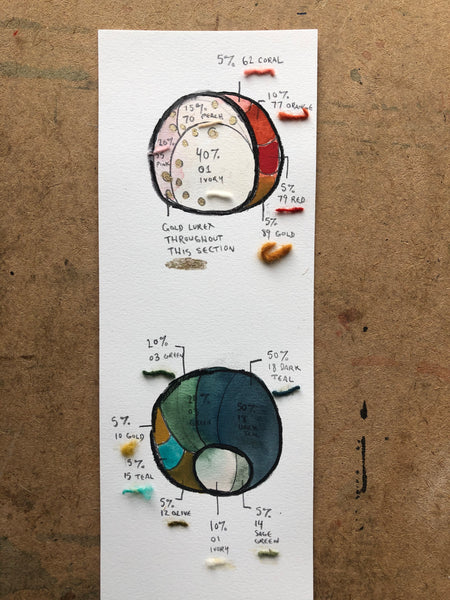 5% 62 CORAL
10%
77 ORANGE
15%
70 PEACH
20%
55 PINK
40%
01
IVORY
5%
79 RED
5%
89 GOLD
GOLD LUREX
THROUGHOUT
THIS SECTION
20%
03 GREEN
50%
18 DARK
TEAL
20%
03
GREEN
50%
18
DARK
TEAL
5%
10 GOLD
5%
15 TEAL
5%
12 OLIVE
10%
01
IVORY
5%
14
SAGE
GREEN